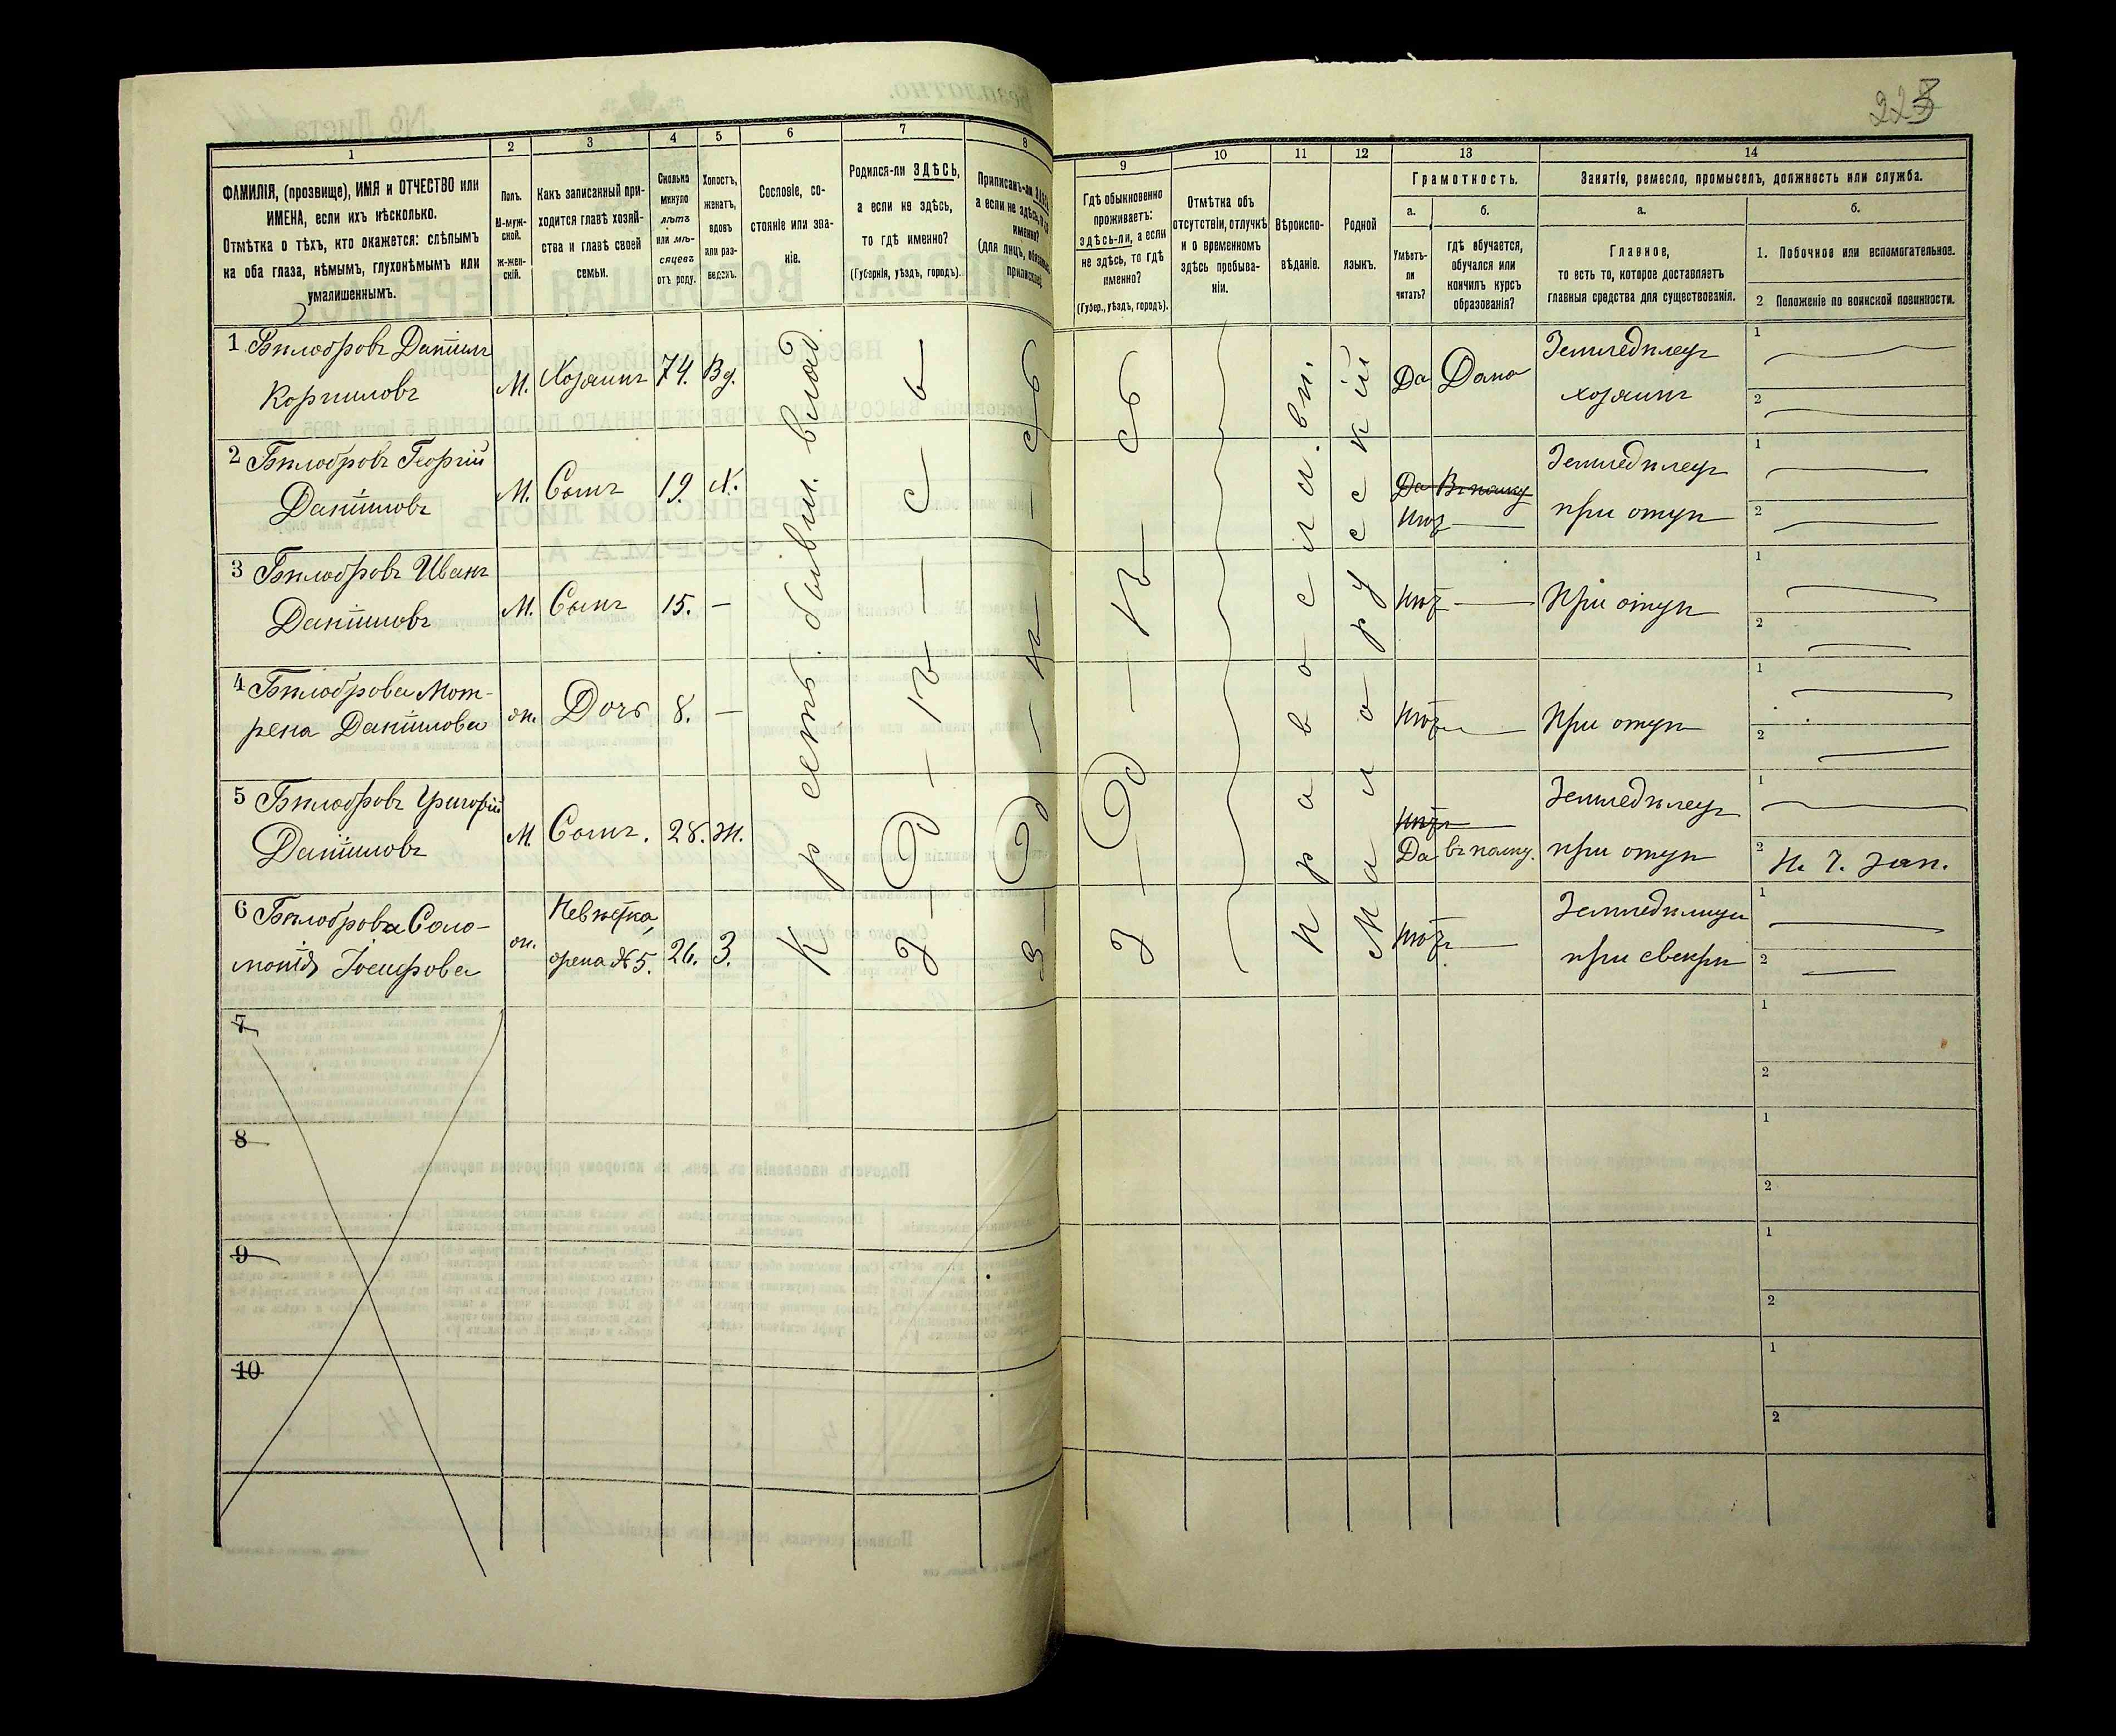 223
1
2
3
4
5
6
7
8
9
10
11
12
13
14
ФАМИЛІЯ, (прозвище), ИМЯ и ОТЧЕСТВО или
ИМЕНА, если ихъ нѣсколько.
Отмѣтка о тѣхъ, кто окажется: слѣпымъ
на оба глаза, нѣмымъ, глухонѣмымъ или
умалишеннымъ.
Полъ.
М-муж-
ской.
Ж-жен-
скій.
Какъ записанный при-
ходится главѣ хозяй-
ства и главѣ своей
семьи.
Сколько
минуло
лѣтъ
или мѣ-
сяцевъ
отъ роду.
Холостъ,
женатъ,
вдовъ
или раз-
веденъ.
Сословіе, со-
стояніе или зва-
ніе.
Родился-ли ЗДѢСЬ,
а если не здѣсь,
то гдѣ именно?
(Губернія, уѣздъ, городъ).
Приписанъ-ли
а если не здѣсь,
именно?
(для лицъ,
Гдѣ обыкновенно
проживаетъ:
здѣсь-ли, а если
не здѣсь, то гдѣ
именно?
(Губер., уѣздъ, городъ).
Отмѣтка объ
отсутствіи, отлучкѣ
и о временномъ
здѣсь пребыва-
ніи.
Вѣроиспо-
вѣданіе.
Родной
языкъ.
Грамотность.
а.
б.
Умѣетъ-
ли
читать?
гдѣ обучается,
обучался или
кончилъ курсъ
образованія?
Занятія, ремесло, промыселъ, должность или служба.
а.
б.
Главное,
то есть то, которое доставляетъ
главныя средства для существованія.
1. Побочное или вспомогательное.
2 Положеніе по воинской повинности.
1 Бѣлобровъ Даніилъ
Корниловъ
М.
Хозяинъ
74.
Вд.
Да
Дома
Земледѣлецъ
хозяинъ
1
2
2 Бѣлобровъ Георгій
Даніиловъ
М.
Сынъ
19.
Х.
Да Въ полку
Нѣтъ
Земледѣлецъ
при отцѣ
1
2
3 Бѣлобровъ Иванъ
Даніиловъ
М.
Сынъ
15.
Нѣтъ
При отцѣ
1
2
4 Бѣлоброва Мот-
рена Даніилова
ж.
Дочь
8.
Нѣтъ
При отцѣ
1
2
5 Бѣлобровъ Григорій
Даніиловъ
М.
Сынъ.
28.
Ж.
Нѣтъ
Да въ полку.
Земледѣлецъ
при отцѣ
1
2 Н. Ч. Зап.
6 Бѣлоброва Соло-
монія Іосифова
ж.
Невѣстка,
жена № 5.
26.
З.
Нѣтъ
Земледѣлица
при свекрѣ
1
2
Крестъ. бывш. влад.
Здѣсь
Здѣсь
Здѣсь
Православн.
Малорусскій
7
8
9
10
1
2
1
2
1
2
1
2